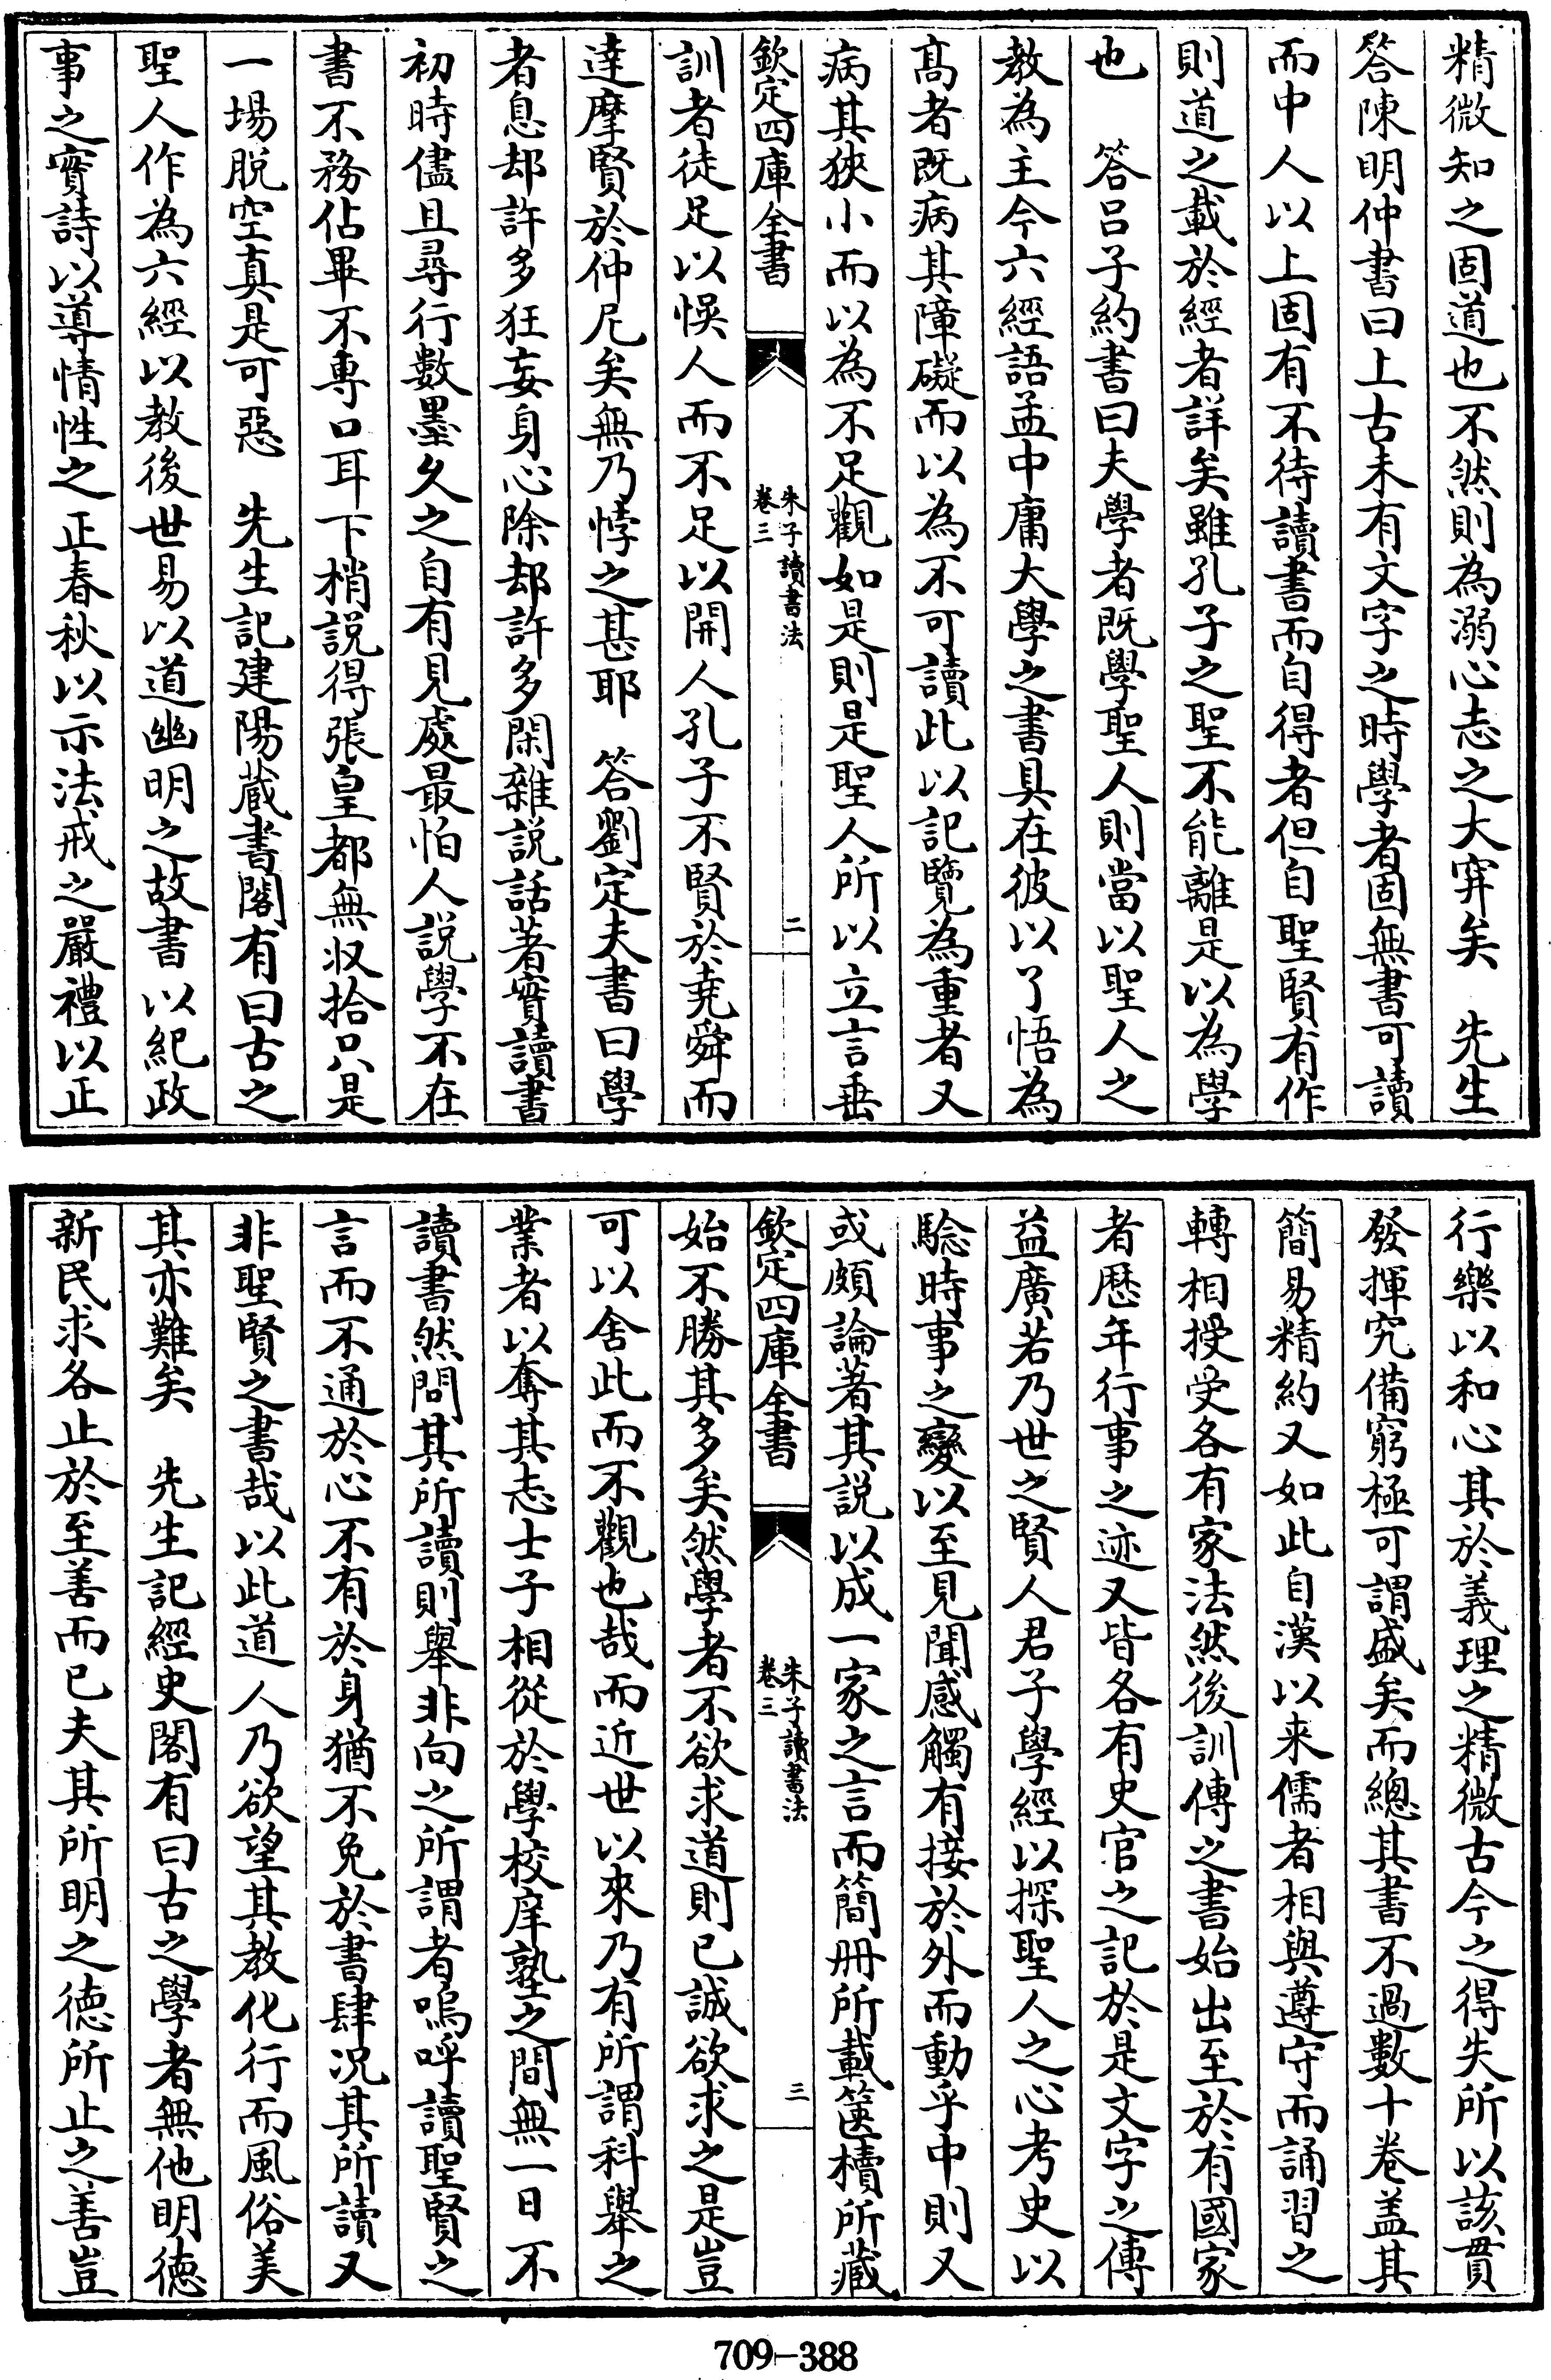 精微知之固道也不然則為溺心志之大穽矣　先生
答陳明仲書曰上古未有文字之時學者固無書可讀
而中人以上固有不待讀書而自得者但自聖賢有作
則道之載於經者詳矣雖孔子之聖不能離是以為學
也　答吕子約書曰夫學者既學聖人則當以聖人之
教為主今六經語孟中庸大學之書具在彼以了悟為
髙者既病其障礙而以為不可讀此以記覽為重者又
病其狹小而以為不足觀如是則是聖人所以立言垂
欽定四庫全書
朱子讀書法
卷三
二
訓者徒足以悞人而不足以開人孔子不賢於堯舜而
達摩賢於仲尼矣無乃悖之甚耶　答劉定夫書曰學
者息却許多狂妄身心除却許多閑雜説話著實讀書
初時儘且尋行數墨久之自有見處最怕人説學不在
書不務佔畢不專口耳下梢説得張皇都無収拾只是
一場脱空真是可惡　先生記建陽蔵書閣有曰古之
聖人作為六經以教後世易以道幽明之故書以紀政
事之實詩以導情性之正春秋以示法戒之嚴禮以正
行樂以和心其於義理之精微古今之得失所以該貫
發揮究備窮極可謂盛矣而總其書不過數十卷盖其
簡易精約又如此自漢以来儒者相與遵守而誦習之
轉相授受各有家法然後訓傳之書始出至於有國家
者歴年行事之迹又皆各有史官之記於是文字之傳
益廣若乃世之賢人君子學經以探聖人之心考史以
騐時事之變以至見聞感觸有接於外而動乎中則又
或頗論著其説以成一家之言而簡冊所載篋櫝所藏
欽定四庫全書
朱子讀書法
卷三
三
始不勝其多矣然學者不欲求道則已誠欲求之是豈
可以舍此而不觀也哉而近世以來乃有所謂科舉之
業者以奪其志士子相從於學校庠塾之間無一日不
讀書然問其所讀則舉非向之所謂者嗚呼讀聖賢之
言而不通於心不有於身猶不免於書肆况其所讀又
非聖賢之書哉以此道人乃欲望其教化行而風俗美
其亦難矣　先生記經史閣有曰古之學者無他明徳
新民求各止於至善而已夫其所明之徳所止之善豈
709-388